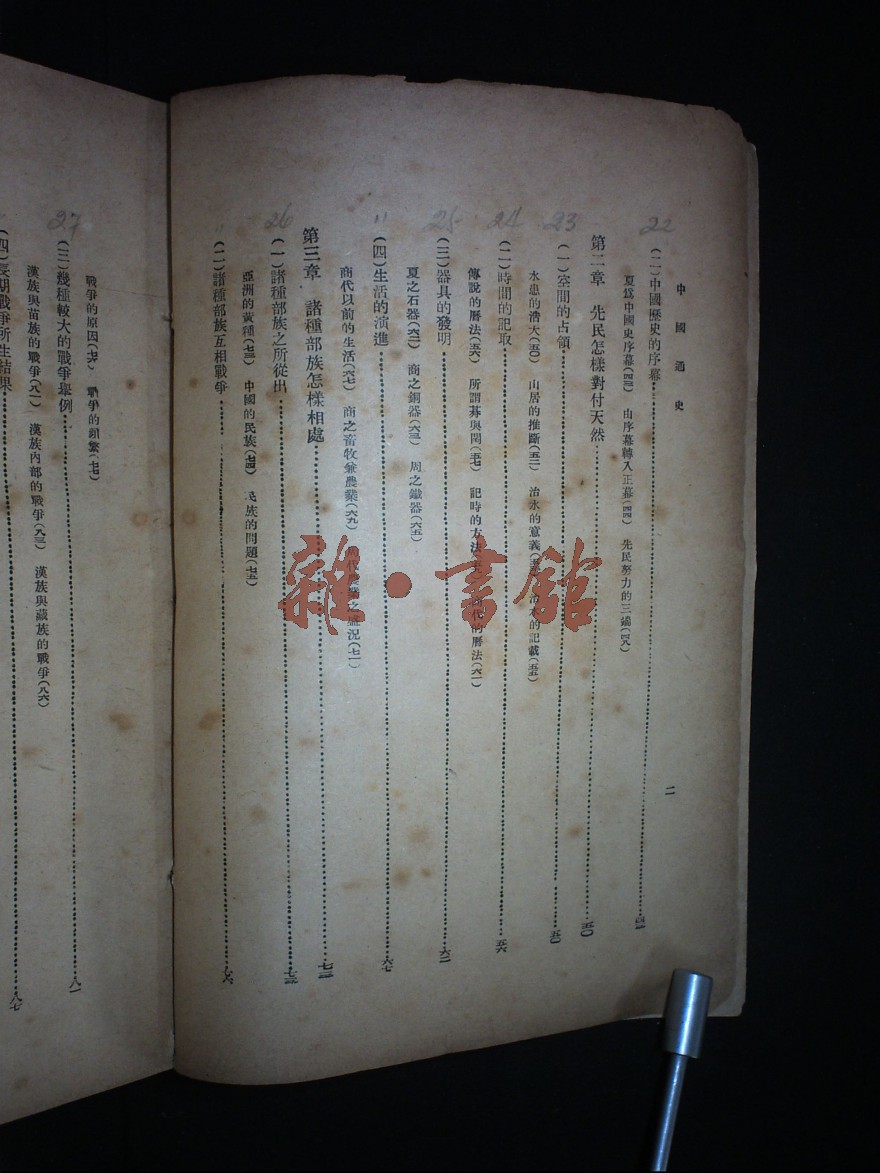 中國通史
二
22
(二)中國歷史的序幕
夏爲中國史序幕(四四) 由序幕轉入正幕(四四) 先民努力的三端(四八)
第二章 先民怎樣對付天然 五〇
23
(一)空間的占領
水患的濟大(五〇) 山居的推斷(五二) 治水的意義 的記載(五五)
24
(二)時間的記取 五六
傳說的曆法(五六) 所謂朞與閏(五七) 記時的方法 代的曆法(六一)
25
(三)器具的發明 六二
夏之石器(六二) 商之銅器(六三) 周之鐵器(六五)
"
(四)生活的演進 六七
商代以前的生活(六七) 商之畜牧兼農業(六九) 之盛況(七一)
第三章 諸種部族怎樣相處 七三
26
(一)諸種部族之所從出 七三
亞洲的黃種(七三) 中國的民族(七四) 民族的問題(七五)
"
(二)諸種部族互相戰爭 七六
戰爭的原因(七六) 戰爭的頻繁(七七)
27
(三)幾種較大的戰爭舉例 八一
漢族與苗族的戰爭(八一) 漢族內部的戰爭(八三) 漢族與藏族的戰爭(八六)
(四)長期戰爭所生結果 八七
雜·書館